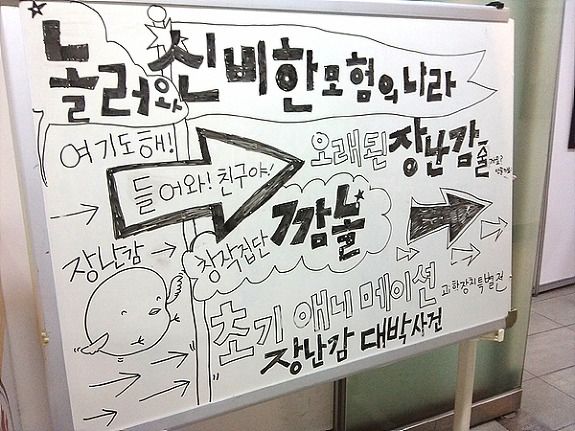 놀러와 신비한 모험의 나라
여기도해!
들어와! 친구야!
오래된 장난감
창작집단 깜놀
장난감
초기 애니메이션
과학장치특별전
장난감 대박사건